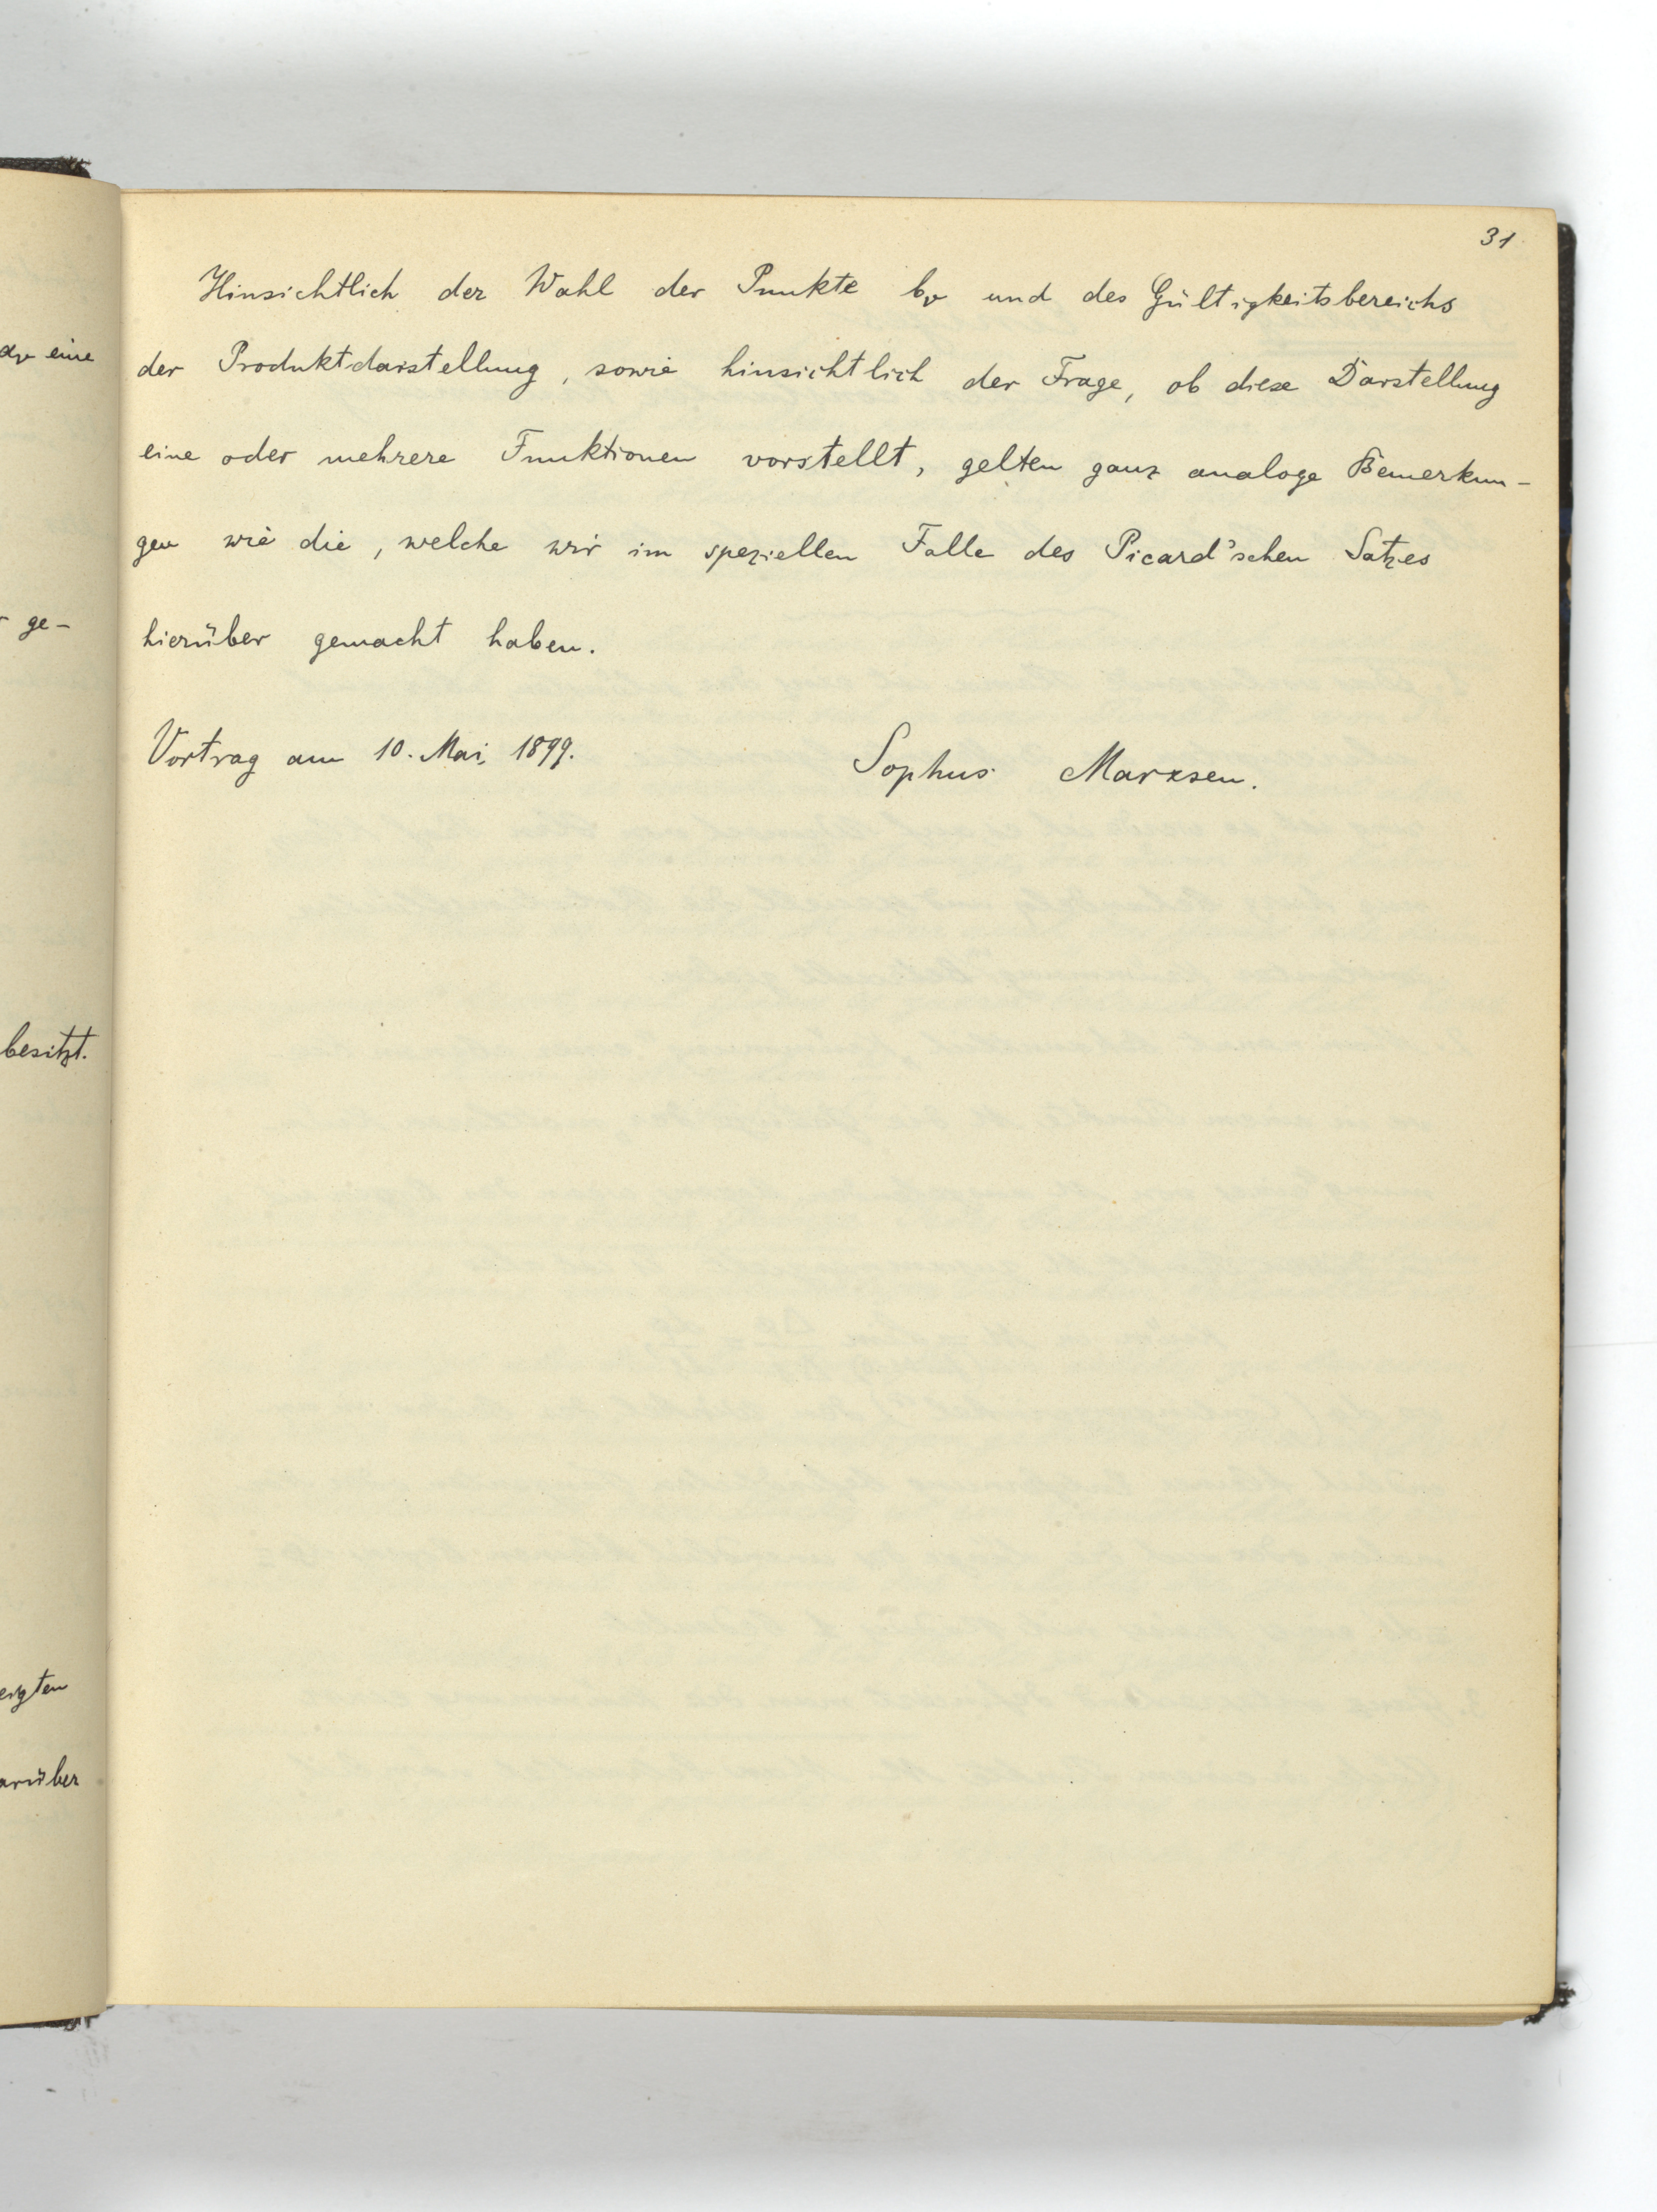 31
Hinsichtlich der Wahl der Punkte bν und des Gültigkeitsbereichs
der Produktdarstellung, sowie hinsichtlich der Frage, ob diese Darstellung
eine oder mehrere Funktionen vorstellt, gelten ganz analoge Bemerkun-
gen wie die, welche wir im speziellen Falle des Picard'schen Satzes
hierüber gemacht haben.
Vortrag am 10. Mai, 1899.
Sophus Marxsen.
eine
ge-
besitzt.